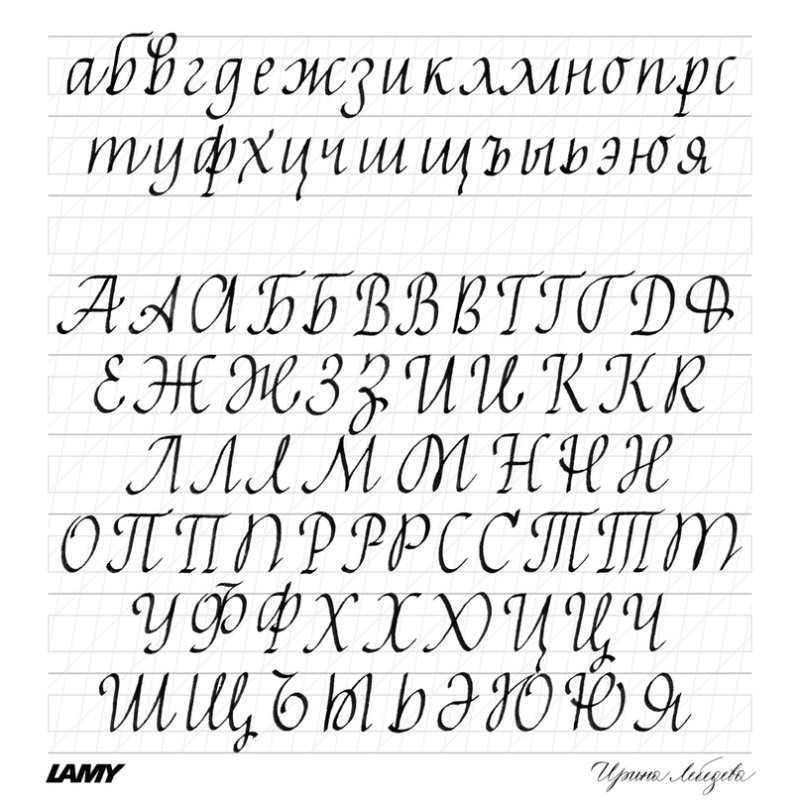 абввгдежзиклмнопрс
туфхцчшщъыьэюя
АААББВВВГГГДД
ЕЖЖЗЗИИККК
ЛЛЛММННН
ОПППРРРССТТТ
УФФХХХЦЦЧ
ШЩЪЫЬЭЮЮЯ
LAMY
Ирина Лебедева